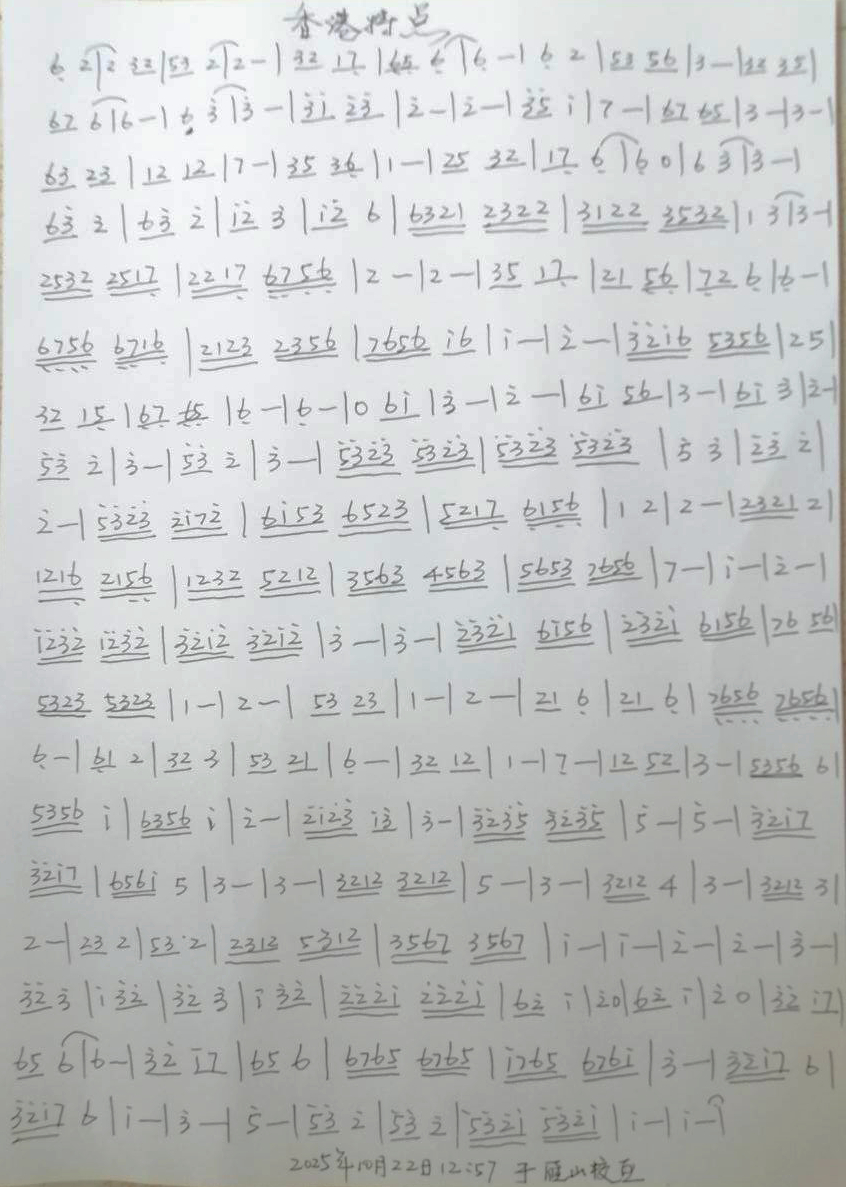 香港特点
6̣ 2|2 32|53 2|2-|32 17̣|6̣5̣ 6̣|6̣-|6̣ 2|53 56|3-|33 35|
67 6|6-|6 3̇|3̇-|3̇1̇ 2̇3̇|2̇-|2̇-|3̇5̇ 1̇|7-|67 65|3-|3-|
63 23|12 12|7-|35 36|1-|25 32|17̣ 6̣|6̣ 0|6 3̇|3̇-|
63̇ 2̇|63̇ 2̇|1̇2̇ 3̇|1̇2̇ 6|6321 2322|3122 3532|1 3|3-|
2532 2517̣|2217̣ 6̣7̣5̣6̣|2-|2-|35 17̣|21 5̣6̣|7̣2 6̣|6̣-|
6̣7̣5̣6̣ 6̣7̣16̣|2123 2356|7656 1̇6|1̇-|2̇-|3̇2̇1̇6 5356|25|
32 15̣|6̣7̣ 6̣5̣|6̣-|6̣-|0 61̇|3̇-|2̇-|61̇ 56|3-|61̇ 3̇|2̇-|
5̇3̇ 2̇|3̇-|5̇3̇ 2̇|3̇-|5̇3̇2̇3̇ 5̇3̇2̇3̇|5̇3̇2̇3̇ 5̇3̇2̇3̇|5̇ 3̇|2̇3̇ 2̇|
2̇-|5̇3̇2̇3̇ 2̇1̇72̇|61̇53 6523|5217̣ 6̣15̣6̣|1 2|2-|2321 2|
1216̣ 215̣6̣|1232 5212|3563 4563|5653 7656|7-|1̇-|2̇-|
1̇2̇3̇2̇ 1̇2̇3̇2̇|3̇2̇1̇2̇ 3̇2̇1̇2̇|3̇-|3̇-|2̇3̇2̇1̇ 61̇56|2̇3̇2̇1̇ 6156|76 56|
5323 5323|1-|2-|53 23|1-|2-|21 6̣|21 6̣|7̣6̣5̣6̣ 7̣6̣5̣6̣|
6̣-|6̣1 2|32 3|53 21|6̣-|32 12|1-|7̣-|12 52|3-|5356 6|
5356 1̇|6356 1̇|2̇-|2̇1̇2̇3̇ 1̇3̇|3̇-|3̇2̇3̇5̇ 3̇2̇3̇5̇|5̇-|5̇-|3̇2̇1̇7
3̇2̇1̇7|6561̇ 5|3-|3-|3212 3212|5-|3-|3212 4|3-|3212 3|
2-|23 2|53 2|2312 5312|3567 3567|1̇-|1̇-|2̇-|2̇-|3̇-|
3̇2̇ 3̇|1̇ 3̇2̇|3̇2̇ 3̇|1̇ 3̇2̇|2̇2̇2̇1̇ 2̇2̇2̇1̇|62̇ 1̇|2̇0|62̇ 1̇|2̇ 0|3̇2̇ 1̇7|
65 6|6-|3̇2̇ 1̇7|65 6|6765 6765|1̇765 6761̇|3̇-|3̇2̇1̇7 6|
3̇2̇1̇7 6|1̇-|3̇-|5̇-|5̇3̇ 2̇|5̇3̇ 2̇|5̇3̇2̇1̇ 5̇3̇2̇1̇|1̇-|1̇-|
2025年10月22日12:57 于雁山校区